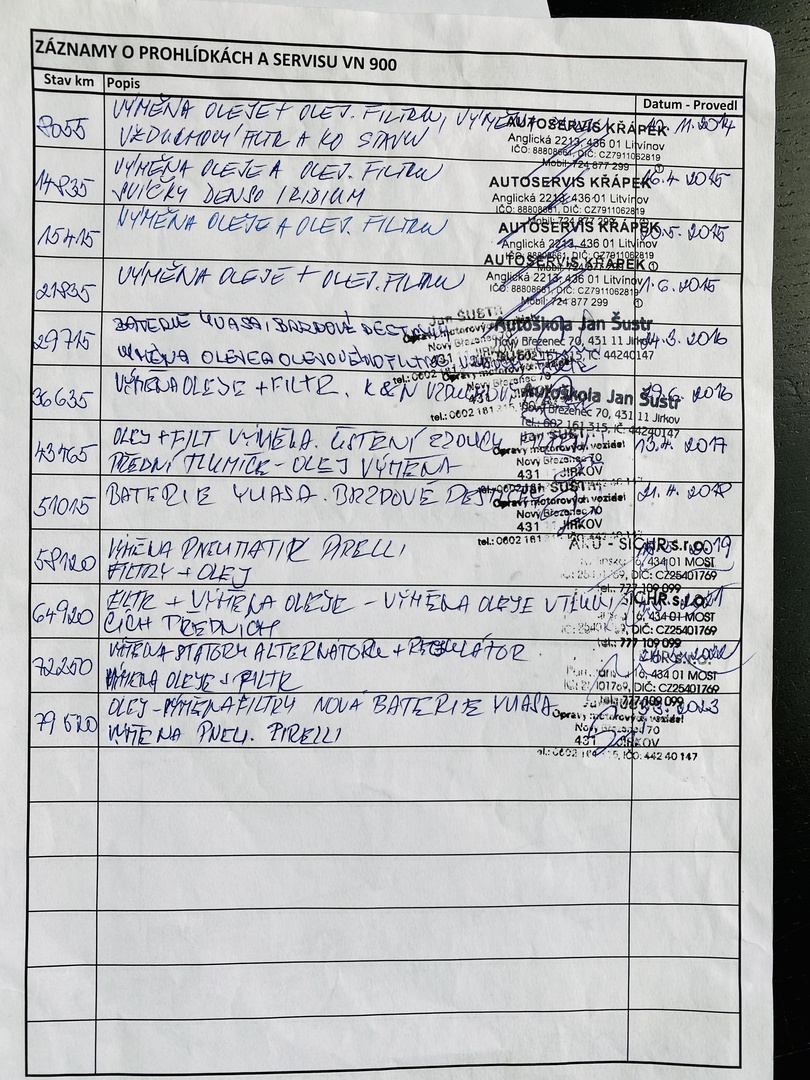 ZÁZNAMY O PROHLÍDKÁCH A SERVISU VN 900
Stav km Popis Datum - Provedl
8055 VÝMĚNA OLEJE + OLEJ. FILTRU, VÝMĚNA 11. 2014
VZDUCHOVÝ FILTR A KO STAVU
AUTOSERVIS KŘÁPEK
Anglická 2213, 436 01 Litvínov
IČO: 88808661, DIČ: CZ7911062819
Mobil: 724 877 299
14835 VÝMĚNA OLEJE A OLEJ. FILTRU 16.4 2015
SVÍČKY DENSO IRIDIUM
AUTOSERVIS KŘÁPEK
Anglická 2213, 436 01 Litvínov
IČO: 88808661, DIČ: CZ7911062819
Mobil: 724 877 299
15415 VÝMĚNA OLEJE A OLEJ. FILTRU 5. 2015
AUTOSERVIS KŘÁPEK
Anglická 2213, 436 01 Litvínov
21835 VÝMĚNA OLEJE + OLEJ. FILTRU 1. 6. 2015
AUTOSERVIS KŘÁPEK
Anglická 2213, 436 01 Litvínov
IČO: 88808661, DIČ: CZ7911062819
Mobil: 724 877 299
29715 BATERIE YUASA, BRZDOVÉ 3. 2016
VÝMĚNA OLEJE A OLEJOVÉHO
Jan ŠUSTR
Opravy motorových
Autoškola Jan Šustr
Nový Březenec 70, 431 11 Jirkov
IČ: 44240147
36635 VÝMĚNA OLEJE + FILTR. K&N 6 2016
Autoškola Jan Šustr
Nový Březenec 70, 431 11 Jirkov
Tel.: 0602 161 315, IČ: 44240147
43465 OLEJ + FILT VÝMĚNA. 4 2017
PŘEDNÍ TLUMIČE - OLEJ VÝMĚNA
Opravy motorových vozidel
Nový Březenec 70
431 JIRKOV
51015 BATERIE YUASA. BRZDOVÉ 21. 4. 2018
Jan ŠUSTR
Opravy motorových vozidel
Nový Březenec 70
431 JIRKOV
tel.: 0602 161
58120 VÝMĚNA PNEUMATIK PIRELLI 2019
FILTRY + OLEJ
AKU - SICHR s.r.o.
434 01 MOST
DIČ: CZ25401769
tel.: 777 109 099
64920 FILTR + VÝMĚNA OLEJE - VÝMĚNA OLEJE V TLUMI
CÍCH PŘEDNÍCH
SICHR s.r.o.
434 01 MOST
DIČ: CZ25401769
tel.: 777 109 099
72250 VÝMĚNA STATORU ALTERNATORU + REGULÁTOR
VÝMĚNA OLEJE + FILTR
434 01 MOST
DIČ: CZ25401769
tel.: 777 109 099
79620 OLEJ - VÝMĚNA FILTRY NOVÁ BATERIE YUASA 2023
VÝMĚNA PNEU. PIRELLI
Opravy motorových vozidel
Nový Březenec 70
431 JIRKOV
IČO: 442 40 147